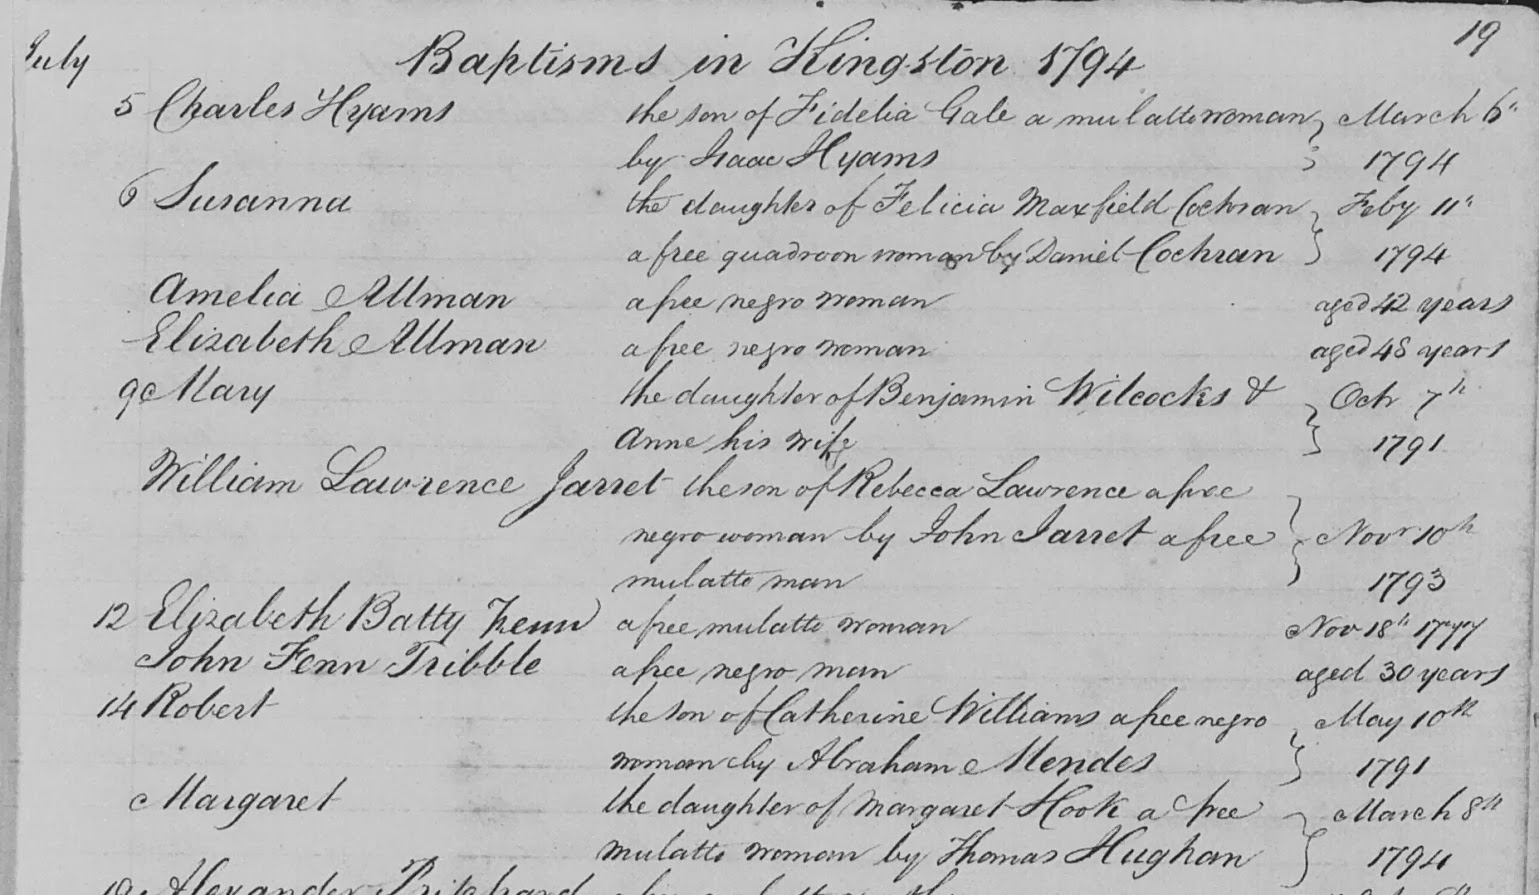 19
July Baptisms in Kingston 1794
5 Charles Hyams the son of Fidelia Gale a mulatto woman March 6th
by Isaac Hyams 1794
6 Susanna the daughter of Felicia Maxfield Cochran Feby 11th
a free quadroon woman by Daniel Cochran 1794
Amelia Allman a free negro woman aged 42 years
Elizabeth Allman a free negro woman aged 48 years
9 Mary the daughter of Benjamin Wilcocks & Octr 7th
Anne his wife 1791
William Lawrence Jarret the son of Rebecca Lawrence a free
negro woman by John Jarret a free Novr 10th
mulatto man 1793
12 Elizabeth Batty Fenn a free mulatto woman Nov 18th 1777
John Fenn Tribble a free negro man aged 30 years
14 Robert the son of Catherine Williams a free negro May 10th
woman by Abraham Mendes 1791
Margaret the daughter of Margaret Hook a free March 8th
mulatto woman by Thomas Hughan 1794
Alexander Pritchard